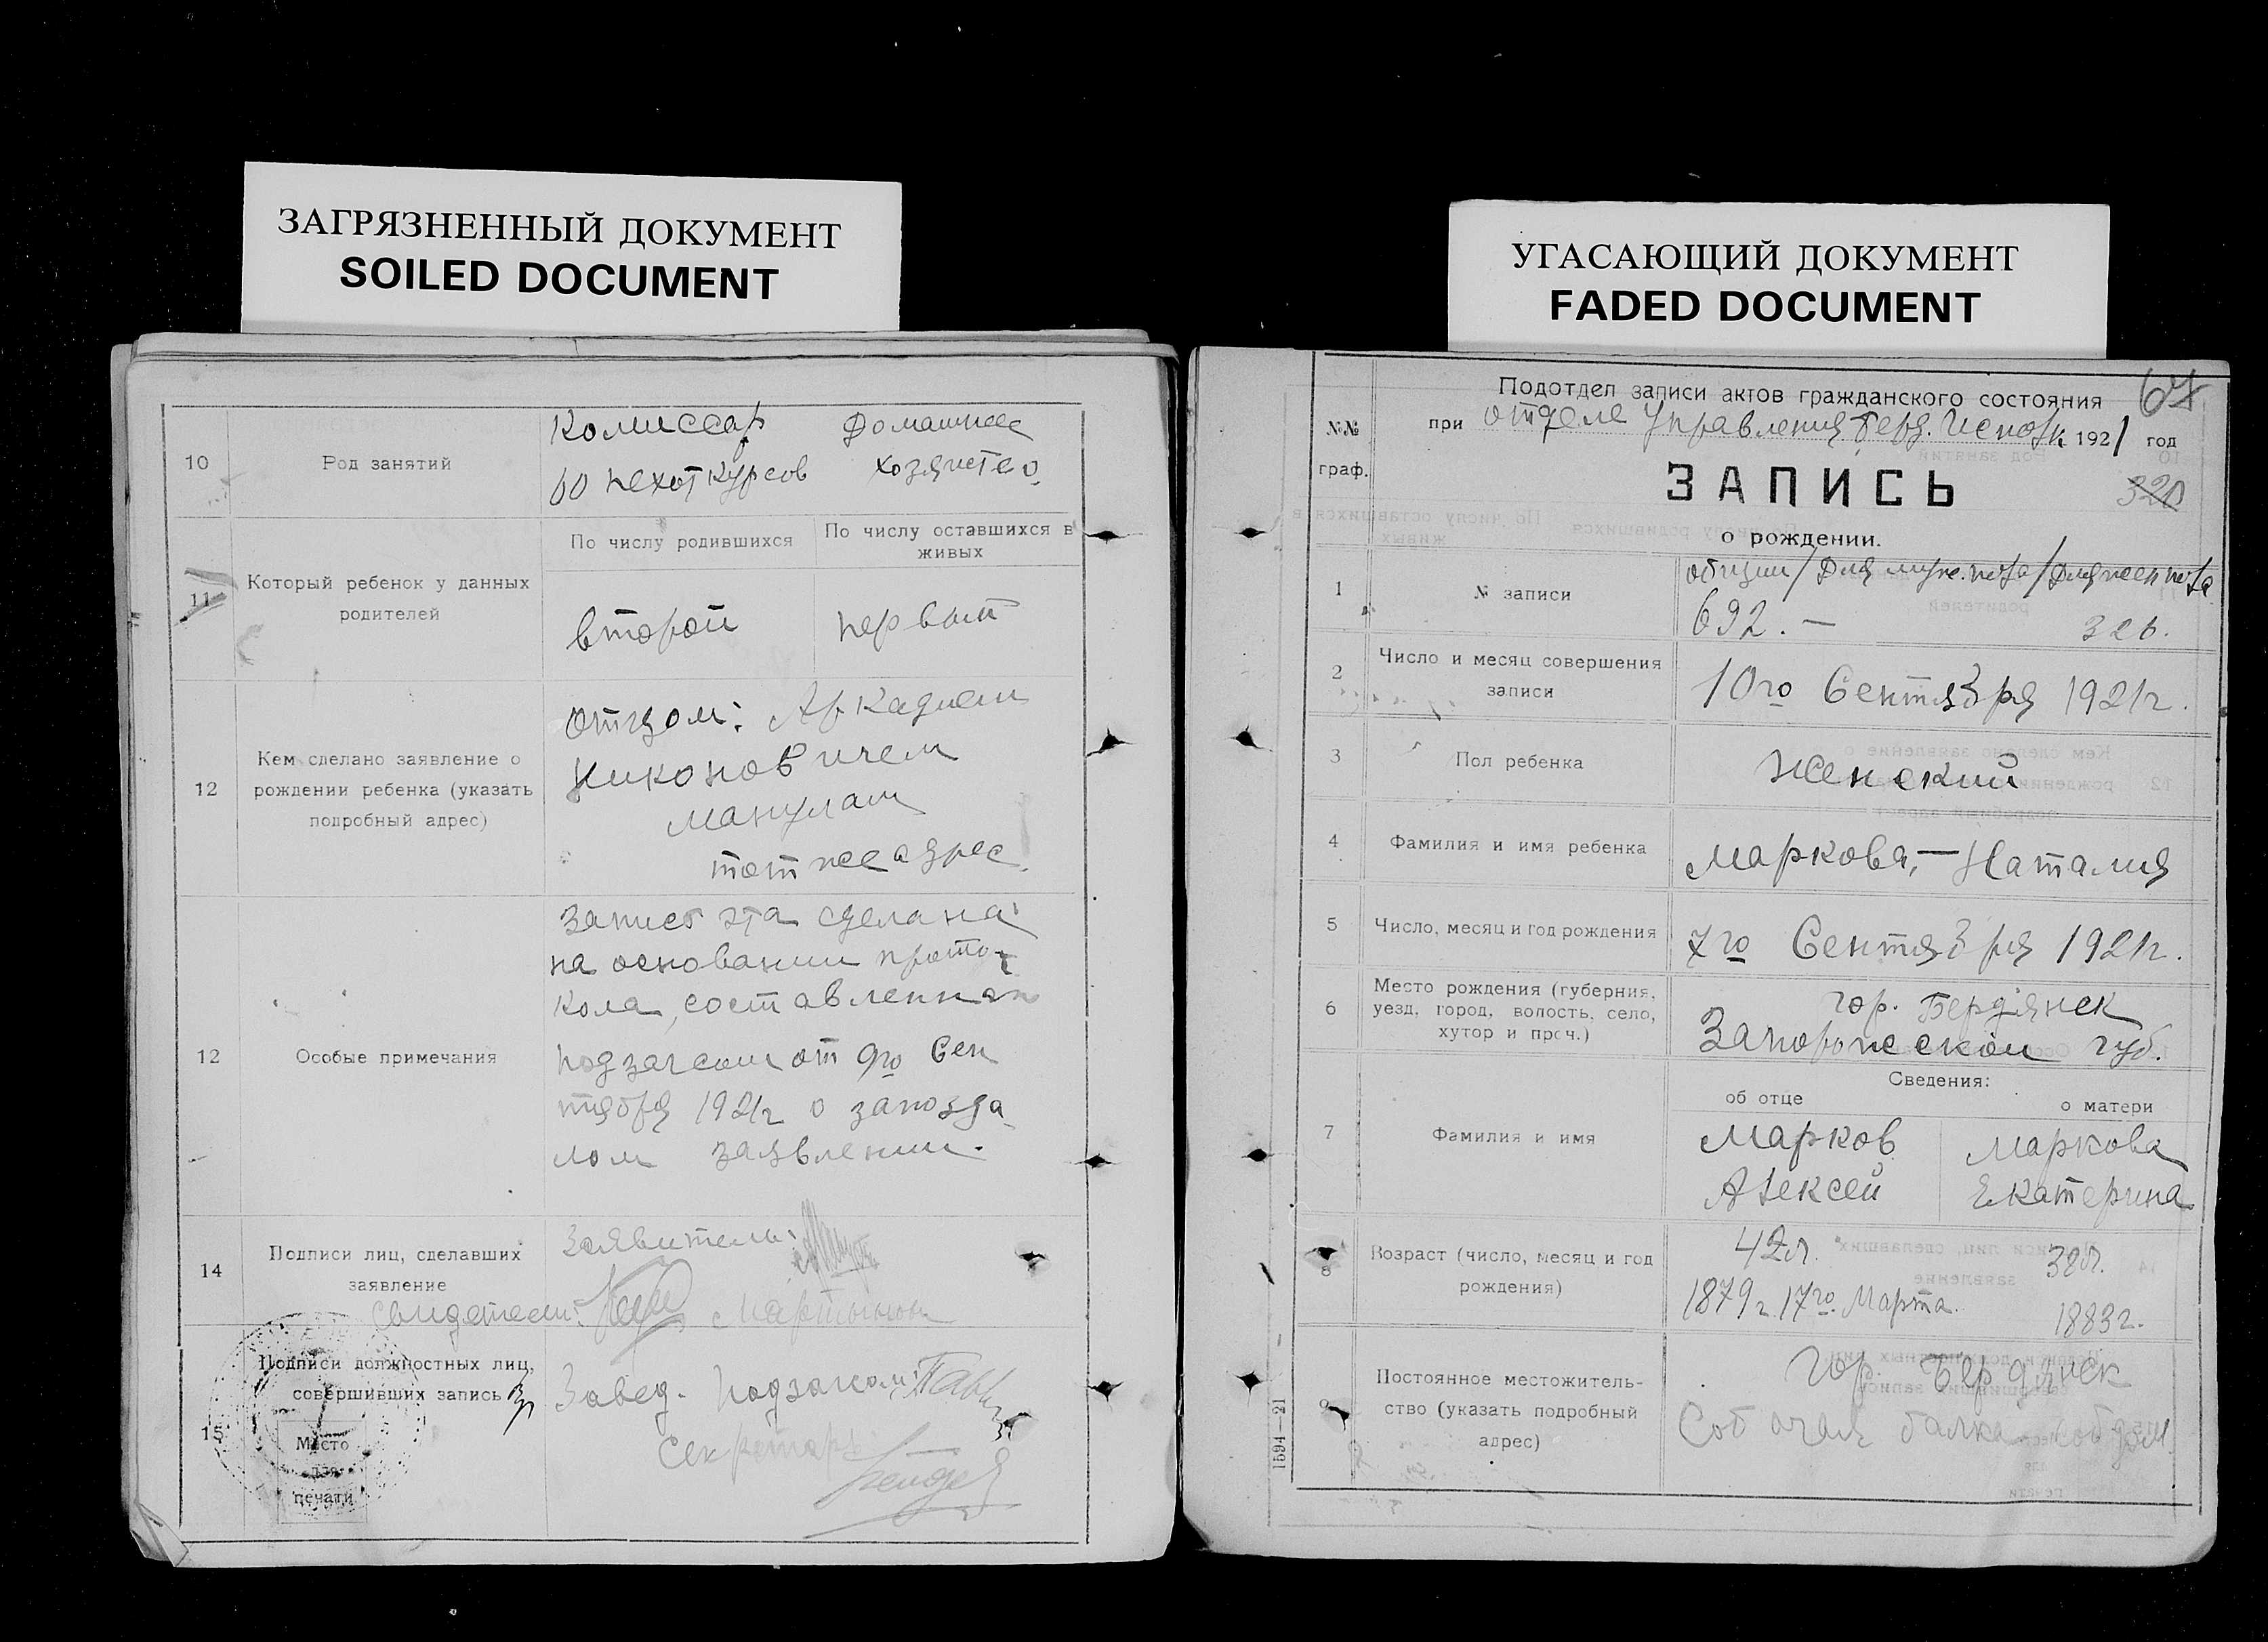 ЗАГРЯЗНЕННЫЙ ДОКУМЕНТ
SOILED DOCUMENT
10
Род занятий
Комиссар
60 пехот курсов
Домашнее
хозяйство
11
Который ребенок у данных
родителей
По числу родившихся
По числу оставшихся в
живых
второй
первый
12
Кем сделано заявление о
рождении ребенка (указать
подробный адрес)
отцом: Аркадием
Никоновичем
тот же адрес.
12
Особые примечания
Запись эта сделана
на основании прото-
кола, составленнаго
подзагсом от 9го Сен
тября 1921г о запозда
лом заявлении.
14
Подписи лиц, сделавших
заявление
Заявитель:
Свидетели:
Мартынюк
15
Подписи должностных лиц,
совершивших запись
Место
для
печати
Завед. подзагсом:
Секретарь
УГАСАЮЩИЙ ДОКУМЕНТ
FADED DOCUMENT
67
№№
граф.
Подотдел записи актов гражданского состояния
при отделе Управления Берд. Исполк 1921 год
ЗАПИСЬ
320
о рождении.
1
№ записи
общий/Для муж. пола/Для жен пола
692.—
326.
2
Число и месяц совершения
записи
10го Сентября 1921г.
3
Пол ребенка
Женский
4
Фамилия и имя ребенка
Маркова,— Наталия
5
Число, месяц и год рождения
7го Сентября 1921г.
6
Место рождения (губерния,
уезд, город, волость, село,
хутор и проч.)
гор. Бердянск
Запорожской губ.
7
Фамилия и имя
Сведения:
об отце
о матери
Марков
Алексей
Маркова
Екатерина
8
Возраст (число, месяц и год
рождения)
42л.
1879г. 17го Марта.
38л.
1883г.
9
Постоянное местожитель-
ство (указать подробный
адрес)
Гор. Бердянск
Собачая балка соб дом
1594—21